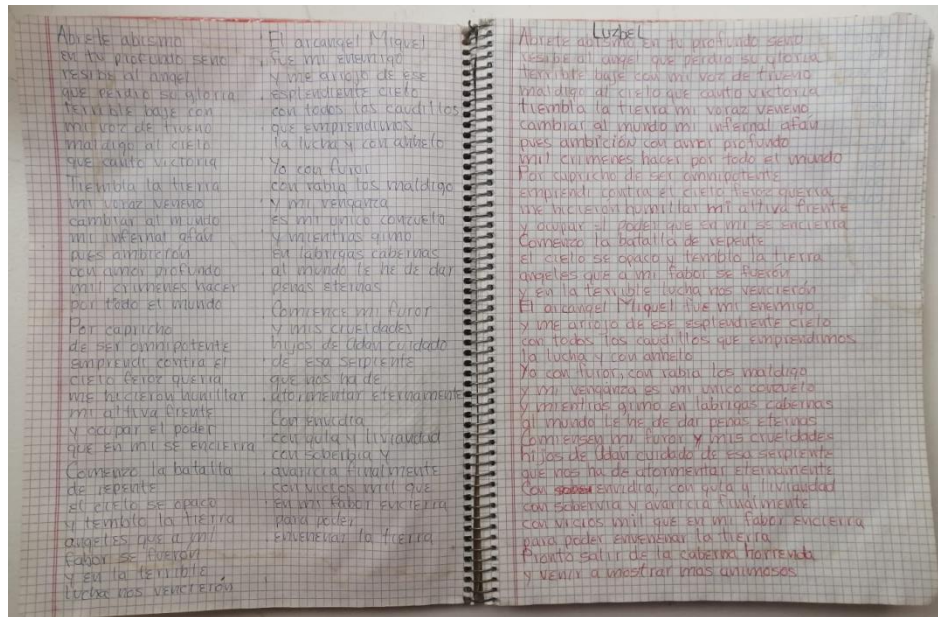 Abrete abismo
en tu profundo seno
resibe al angel
que perdio su gloria
terrible baje con
mi voz de trueno
maldigo al cielo
que canto victoria
Tiembla la tierra
mi voraz veneno
cambiar al mundo
mi infernal afán
pues ambición
con amor profundo
mil crimenes hacer
por todo el mundo
Por capricho
de ser omnipotente
emprendi contra el
cielo feroz guerra
me hicierón humillar
mi altiva frente
y ocupar el poder
que en mi se encierra
Comenzo la batalla
de repente
el cielo se opaco
y temblo la tierra
angeles que a mi
fabor se fuerón
y en la terrible
lucha nos vencierón
El arcangel Miguel
fue mi enemigo
y me arrojo de ese
esplendiente cielo
con todos los caudillos
que emprendimos
la lucha y con anhelo
Yo con furor
con rabia los maldigo
y mi venganza
es mi unico conzuelo
y mientras gimo
en labrigas cabernas
al mundo le he de dar
penas eternas
Comience mi furor
y mis crueldades
hijos de Adan cuidado
de esa serpiente
que nos ha de
atormentar eternamente
Con envidia
con gula y liviandad
con soberbia y
avaricia finalmente
con vicios mil que
en mi fabor encierra
para poder
envenenar la tierra
Luzbel
Abrete abismo en tu profundo seno
resibe al angel que perdio su gloria
terrible baje con mi voz de trueno
maldigo al cielo que canto victoria
tiembla la tierra mi voraz veneno
cambiar al mundo mi infernal afán
pues ambición con amor profundo
mil crimenes hacer por todo el mundo
Por capricho de ser omnipotente
emprendi contra el cielo feroz guerra
me hicierón humillar mi altiva frente
y ocupar el poder que en mi se encierra
Comenzo la batalla de repente
el cielo se opaco y temblo la tierra
angeles que a mi fabor se fuerón
y en la terrible lucha nos vencierón
El arcangel Miguel fue mi enemigo
y me arrojo de ese esplendiente cielo
con todos los caudillos que emprendimos
la lucha y con anhelo
Yo con furor, con rabia los maldigo
y mi venganza es mi unico conzuelo
y mientras gimo en labrigas cabernas
al mundo le he de dar penas eternas
Comiensen mi furor y mis crueldades
hijos de Adan cuidado de esa serpiente
que nos ha de atormentar eternamente
Con envidia, con gula y liviandad
con sobervia y avaricia finalmente
con vicios mil que en mi fabor encierra
para poder envenenar la tierra
Pronto salir de la caberna horrenda
y venir a mostrar mas animosos